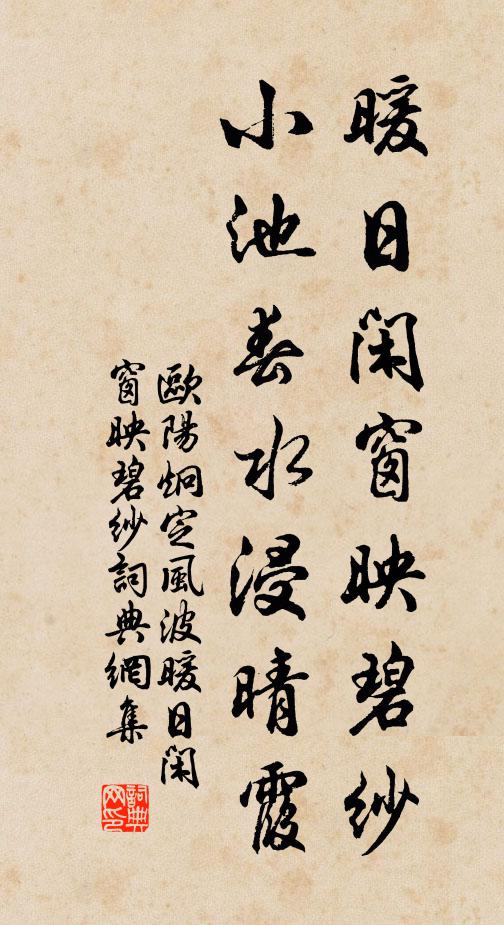 暖日閑窗映碧紗
小池春水浸晴霞
歐陽炯定風波暖日閑
窗映碧紗詞典網集
詞典
网印